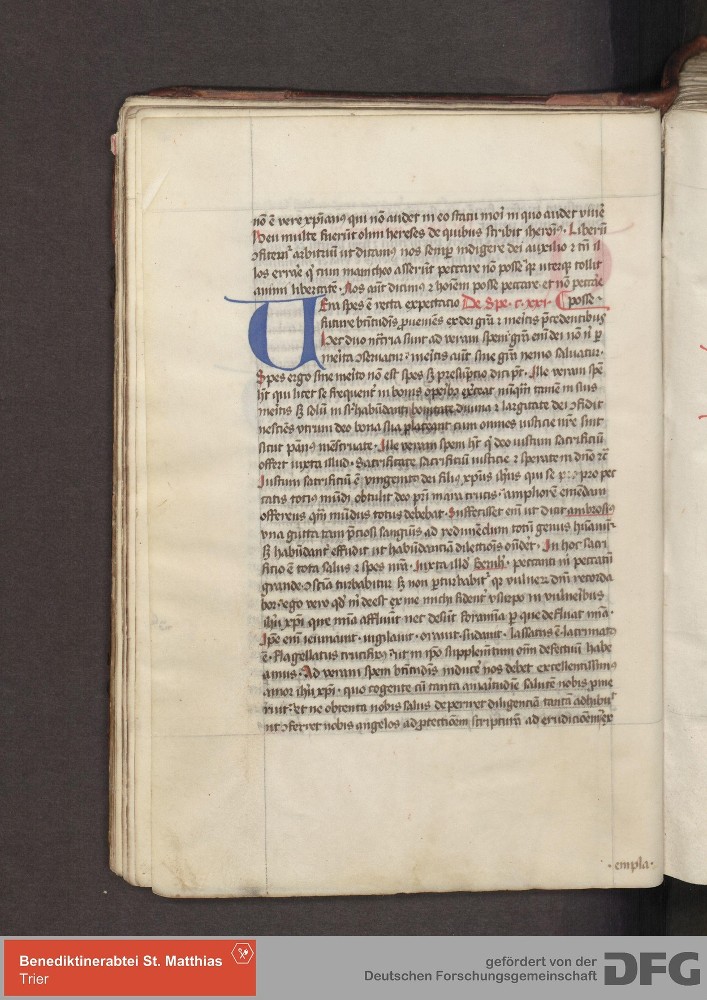 nō ē vere xp̄ianus qui nō audet in eo statu mori in quo audet viuē
Heu multe fuerūt olim hereses de quibus scribit iheronī⁹. Liberū
ɔfitemʳ arbitriū ut dicamus nos semꝑ indigere dei auxilio ⁊ tā il
los errare qui cum manicheo asserūt peccare nō posse qr̄ uterqꝫ tollit
arbitrii libertatē. Nos aūt dicimus ⁊ hoīem posse peccare et nō peccare
Era spes ē certa expectacio De Spe. c. xxi. posse.
future btītudīs ꝓueniēs ex dei grā ⁊ meritis p̄cedentibus
Hec duo nccīria sunt ad veram spem grā enī dei nō nī ꝑ
merita ɔseruatur meritis aūt sine grā nemo saluatur.
Spes ergo sine merito nō est spes sꝫ presūptio dici pt̄. Ille veram spē
hꝫ qui licet se frequentʳ in bonis operibꝰ exerceat nūqm̄ tamē in suis
meritis sꝫ solū in sr̄habūdanti bonitate diuina ⁊ largitate dei ɔfidit
nesciēs vtrum deo bona sua placeant cum omnes iusticie nr̄e sint
sicut pān⁹ mēstruate. Ille veram spem hꝫ qui deo iustum sacrificiū
offert iuxta illud. Sacrificate sacrificiū iusticie ⁊ sperate in dn̄o
Iustum sacrificiū ē vnigenitus dei filius xp̄us ih̄us qui se pro pec
catis totiꝰ mūdi obtulit deo pr̄i in ara crucis. ampliorē emēdam
offerens qm̄ mūdus totus debebat. Suffecisset enī ut dicit ambrosiꝰ
vna gutta tam p̄ciosi sanguīs ad redimēdum totū genus humanū.
sꝫ habūdantʳ effudit ut habūdanciā dilectiōis oñderet. In hoc sacri
ficio ē tota salus ⁊ spes nr̄a. Iuxta illd̄ Bernh. peccaui peccatū
grande ɔsciā turbabitur sꝫ non ꝑturbabitʳ qr̄ vulnerū dn̄i recorda
bor. ego vero qd̄ m̄ deest ex me michi fidenter vsurpo in vulneribus
ih̄u xp̄i que mīa affluūt nec desūt foramina ꝑ que defluat mīa.
Ipse enī ieiunauit. vigilauit. orauit. sudauit. lassatus ē. lacrimatꝰ
ē. flagellatus crucifixus ut in ip̄o supplemētum oīm defectuū habe
amus. Ad veram spem btītudīs inducē nos debet excellentissimꝰ
amor ih̄u xp̄i. quo cogente cū tanta amaritudīe salutē nobis
et ne obtenta nobis salus deperiret diligenciā tantā adhibuit
ut ɔferret nobis angelos ad ꝓtectiōem scripturā ad erudicionē ex
. empla .
Benediktinerabtei St. Matthias
Trier
gefördert von der
Deutschen Forschungsgemeinschaft
DFG